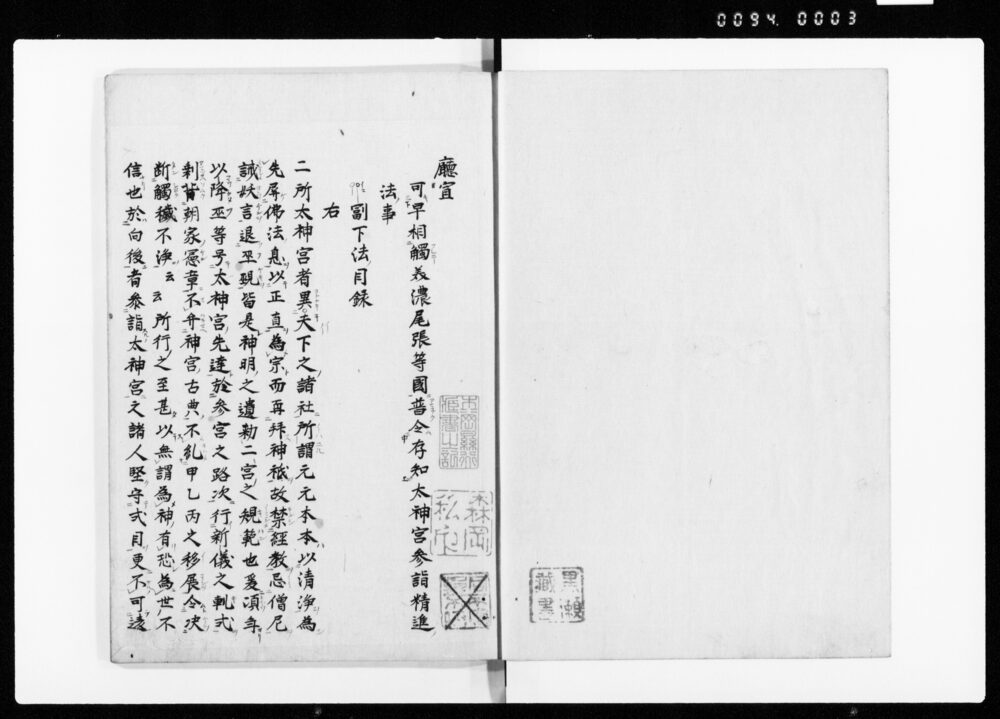 0094. 0003
廳宣
可早相觸美濃尾張等國普令存知太神宮参詣精進
法事
副下法目録
右
二所太神宮者異天下之諸社所謂元元本本以清浄為
先屏佛法息以正直為宗而再拝神祇故禁經教忌僧尼
誡妖言退巫覡皆是神明之遺勅二宮之規範也爰項年
以降巫等号太神宮先達於参宮之路次行新儀之軌式
剰背朝家憲章不弁神宮古典不糺甲乙丙之移展令决
断觸穢不浄云云所行之至甚以無謂為神有恐為世不
信也於向後者参詣太神宮之諸人堅守式目更不可違
森岡
黒瀬
蔵書